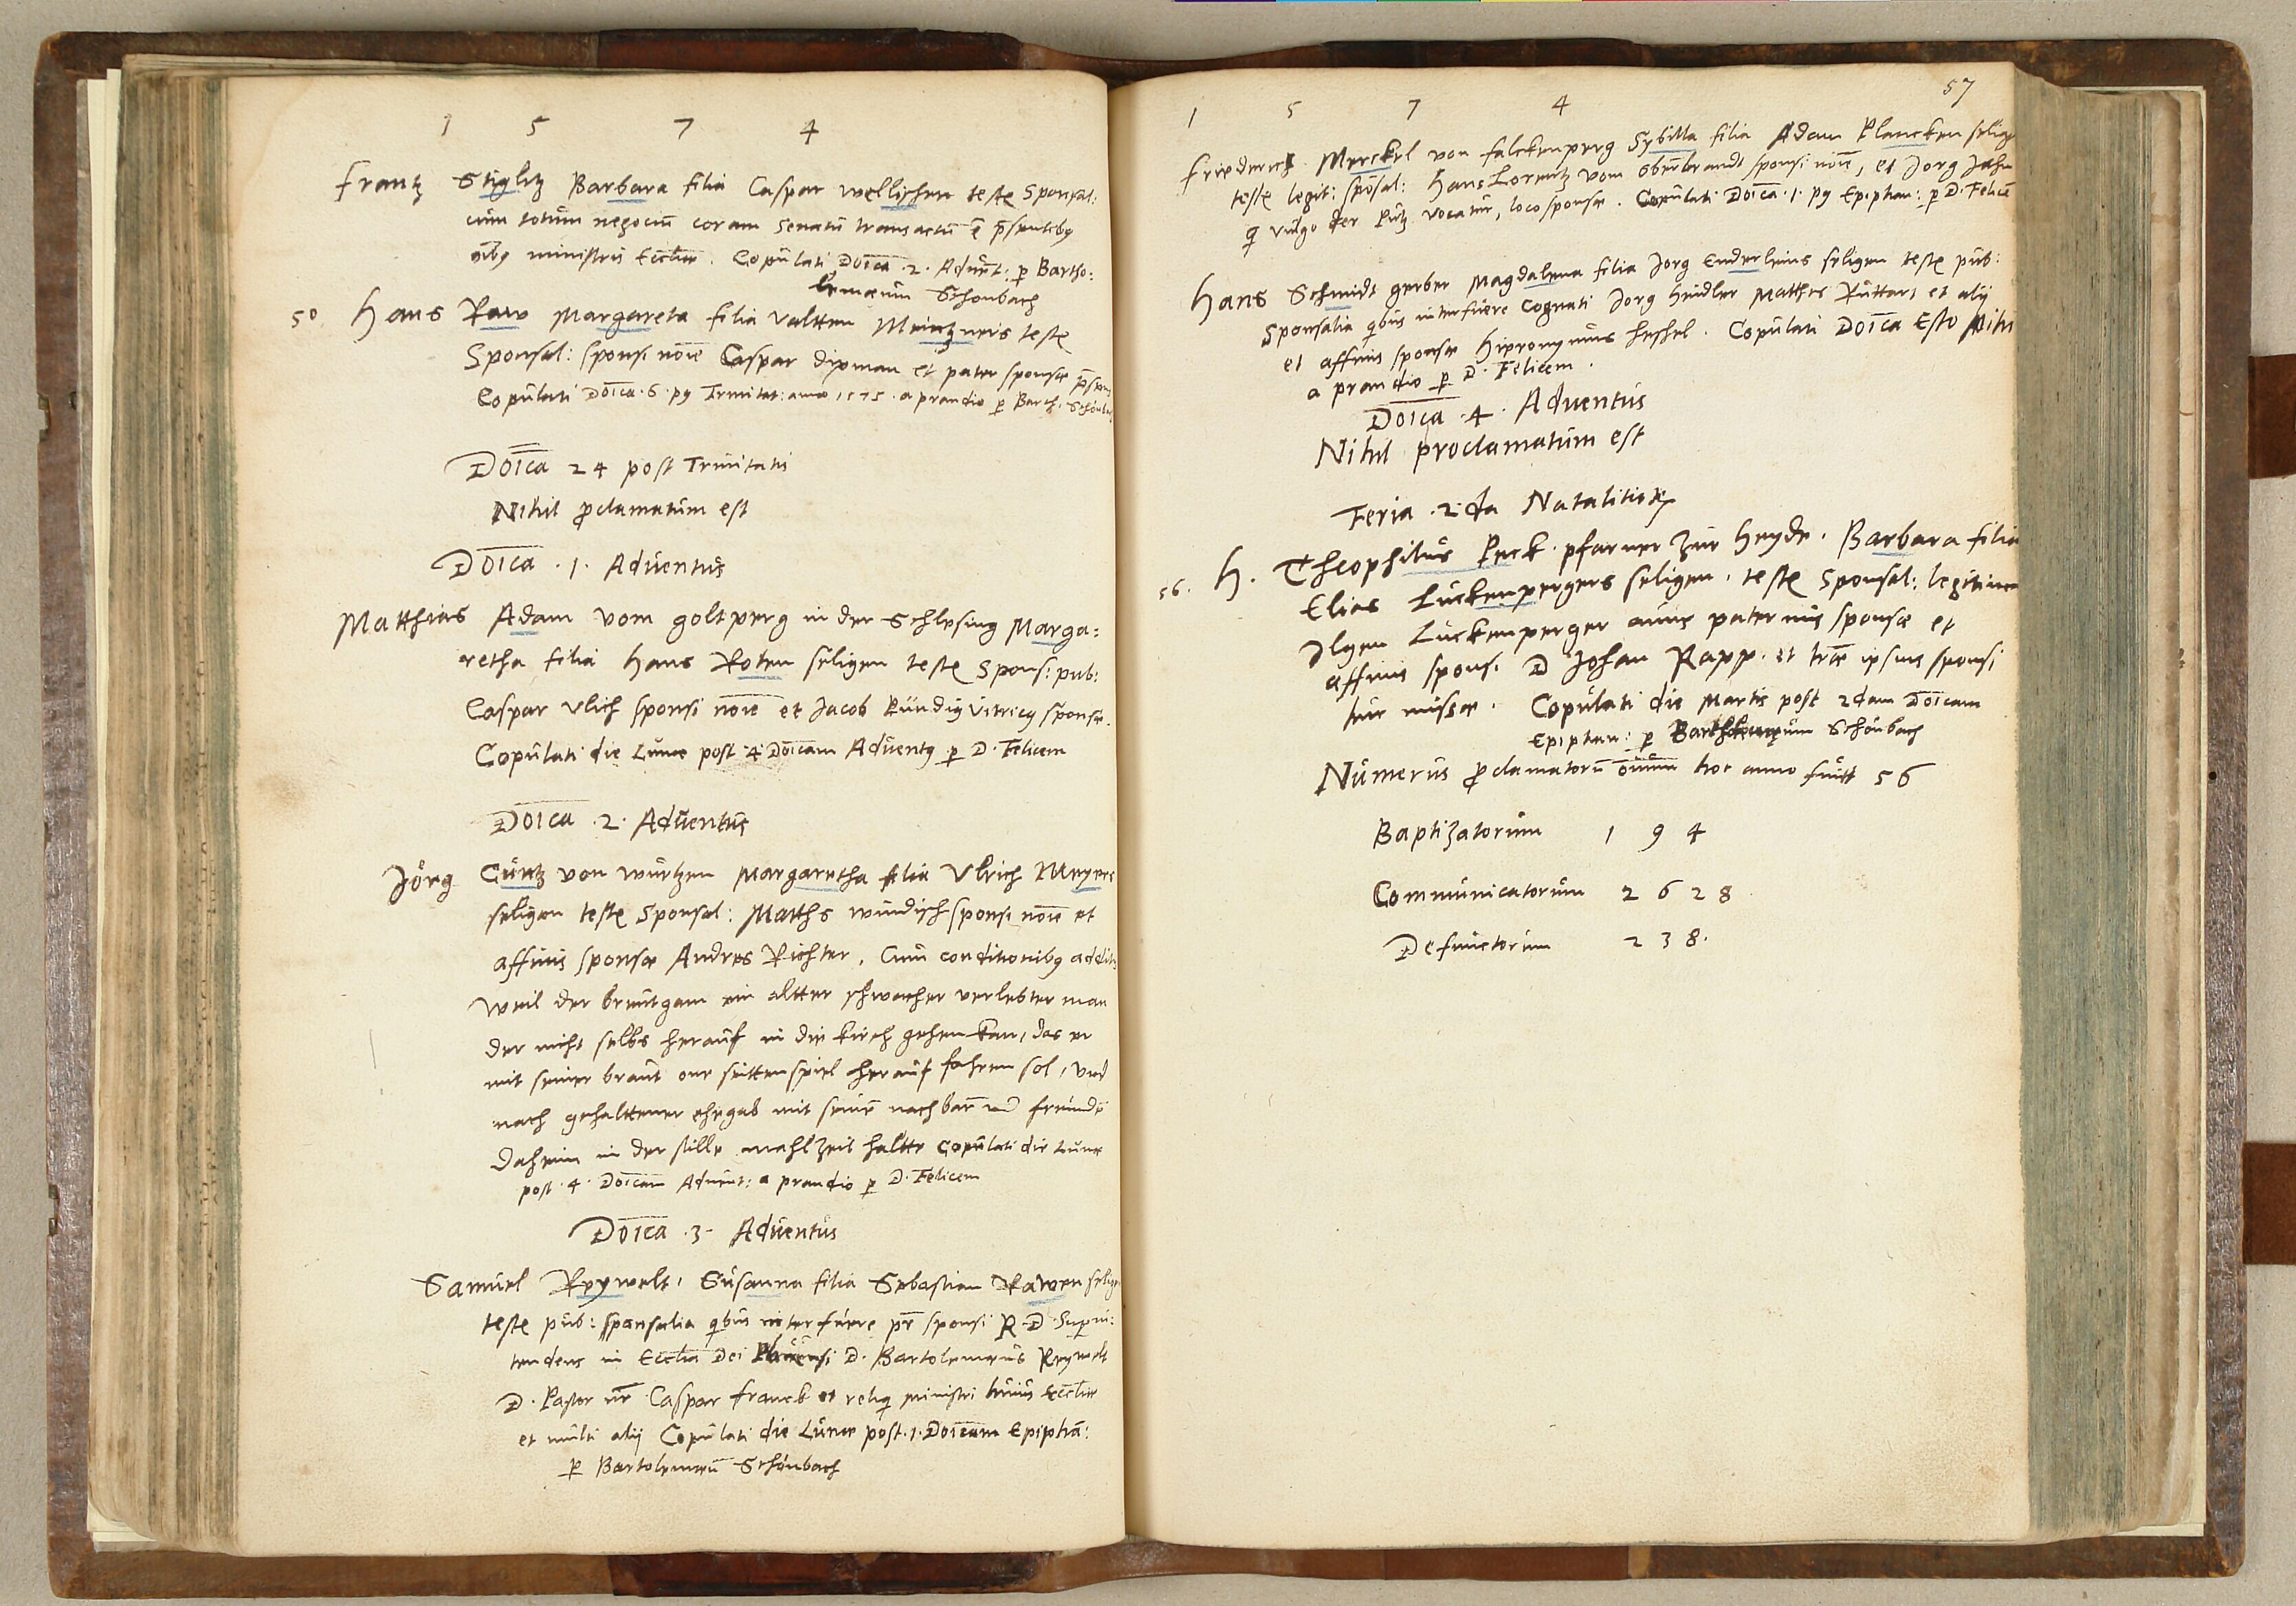 1 5 7 4
Frantz Stiglitz Barbara filia Caspar wellischen teste Sponsal:
cum totum negociū coram Senatu transactū ē p̄sentibꝯ
oībꝯ ministris Eccliæ. Copulati Doīca .2. Aduēt: ꝑ Bartho:
lemæum Schonbach
50 Hans Raw Margareta filia Valtten Meintzners teste
Sponsal: sponsi noīe Caspar dipman et pater sponsæ p̄sens
Copulati Doīca .6. pꝯ Trinitat: anno 1575. a prandio ꝑ Barth. Schönb
Doīca 24 post Trinitatis
Nihil ꝓclamatum est
Doīca .1. Aduentus
Matthias Adam vom goltperg in der Schlesing Marga:
retha filia Hans Roten seligen teste Spons: pub:
Caspar Vlich sponsi noīe et Jacob Pundig vitricꝯ sponsæ.
Copulati die Lunæ post 4 Doīcam Aduentꝯ ꝑ D. Felicem
Doīca .2. Aduentus
Jörg Cuntz von wurtzen Margaretha filia Vlrich Meyers
seligen teste Sponsal: Matths windisch sponsi noīe et
affinis sponsæ Andres Richter. Cum conditionibꝯ additis
Weil der breutgam ein altter schwacher verlebter man
der nicht selbs herauf in die kirch gehen kan, das er
mit seiner braut one seittenspiel herauf fahren sol, vnd
nach gehalttener ehegab mit seinē nachbarn vn̄ freundē
daheim in der stille mahlzeit haltte Copulati die Lunæ
post .4. Doīcam Aduent: a prandio ꝑ D. Felicem
Doīca .3. Aduentus
Samuel Reywelt, Susanna filia Sebastian Rawen selige
teste pub: sponsalia qibus interfuere pr̄ sponsi R. D. Superin:
tendens in Ecclia Dei D. Bartolemæus Reywelt
D. Pastor nr̄ Caspar Franck et reliqi ministri huius Eccliæ
et multi alij Copulati die Lunæ post .1. Doīcam Epiphā:
ꝑ Bartolemæū Schönbach
57
1 5 7 4
Friederich Merckel von falckenperg Sybilla filia Adam Plancken selige
teste legit: sposal: Hans Lorentz vom oberbrandt sponsi noīe, et Jorg Jahn
q vulgo der Putz vocatur, loco sponsæ. Copulati Doīca .1. pꝯ Epiphan: ꝑ D. Felicē
Hans Schmidt gerber Magdalena filia Jorg Enderleins seligen teste pub:
Sponsalia qibus interfuere Cognati Jorg Heudler Matthes Ruttart et alij
et affinis sponsæ Hieronymus Heschel. Copulati Doīca Esto Mihi
a prandio ꝑ D. Felicem.
Doīca .4. Aduentus
Nihil proclamatum est
Feria .2.da Natalitioꝝ
56. H. Theophilus Peck pfarner zur Heyde. Barbara filia
Elias Luckenpergers seligen, teste Sponsal: legitima
Ilgen Luckenperger auus paternus sponsæ et
affinis sponsi D Johan Rapp. et lr̄æ ipsius sponsi
huc missæ. Copulati die Martis post 2dam Doīcam
Epiphan: ꝑ Bartholemæum Schönbach
Numerus ꝓclamatorū oīnium hoc anno fuitt 56
Baptizatorum 1 9 4
Communicatorum 2 6 2 8
Defunctorum 2 3 8.